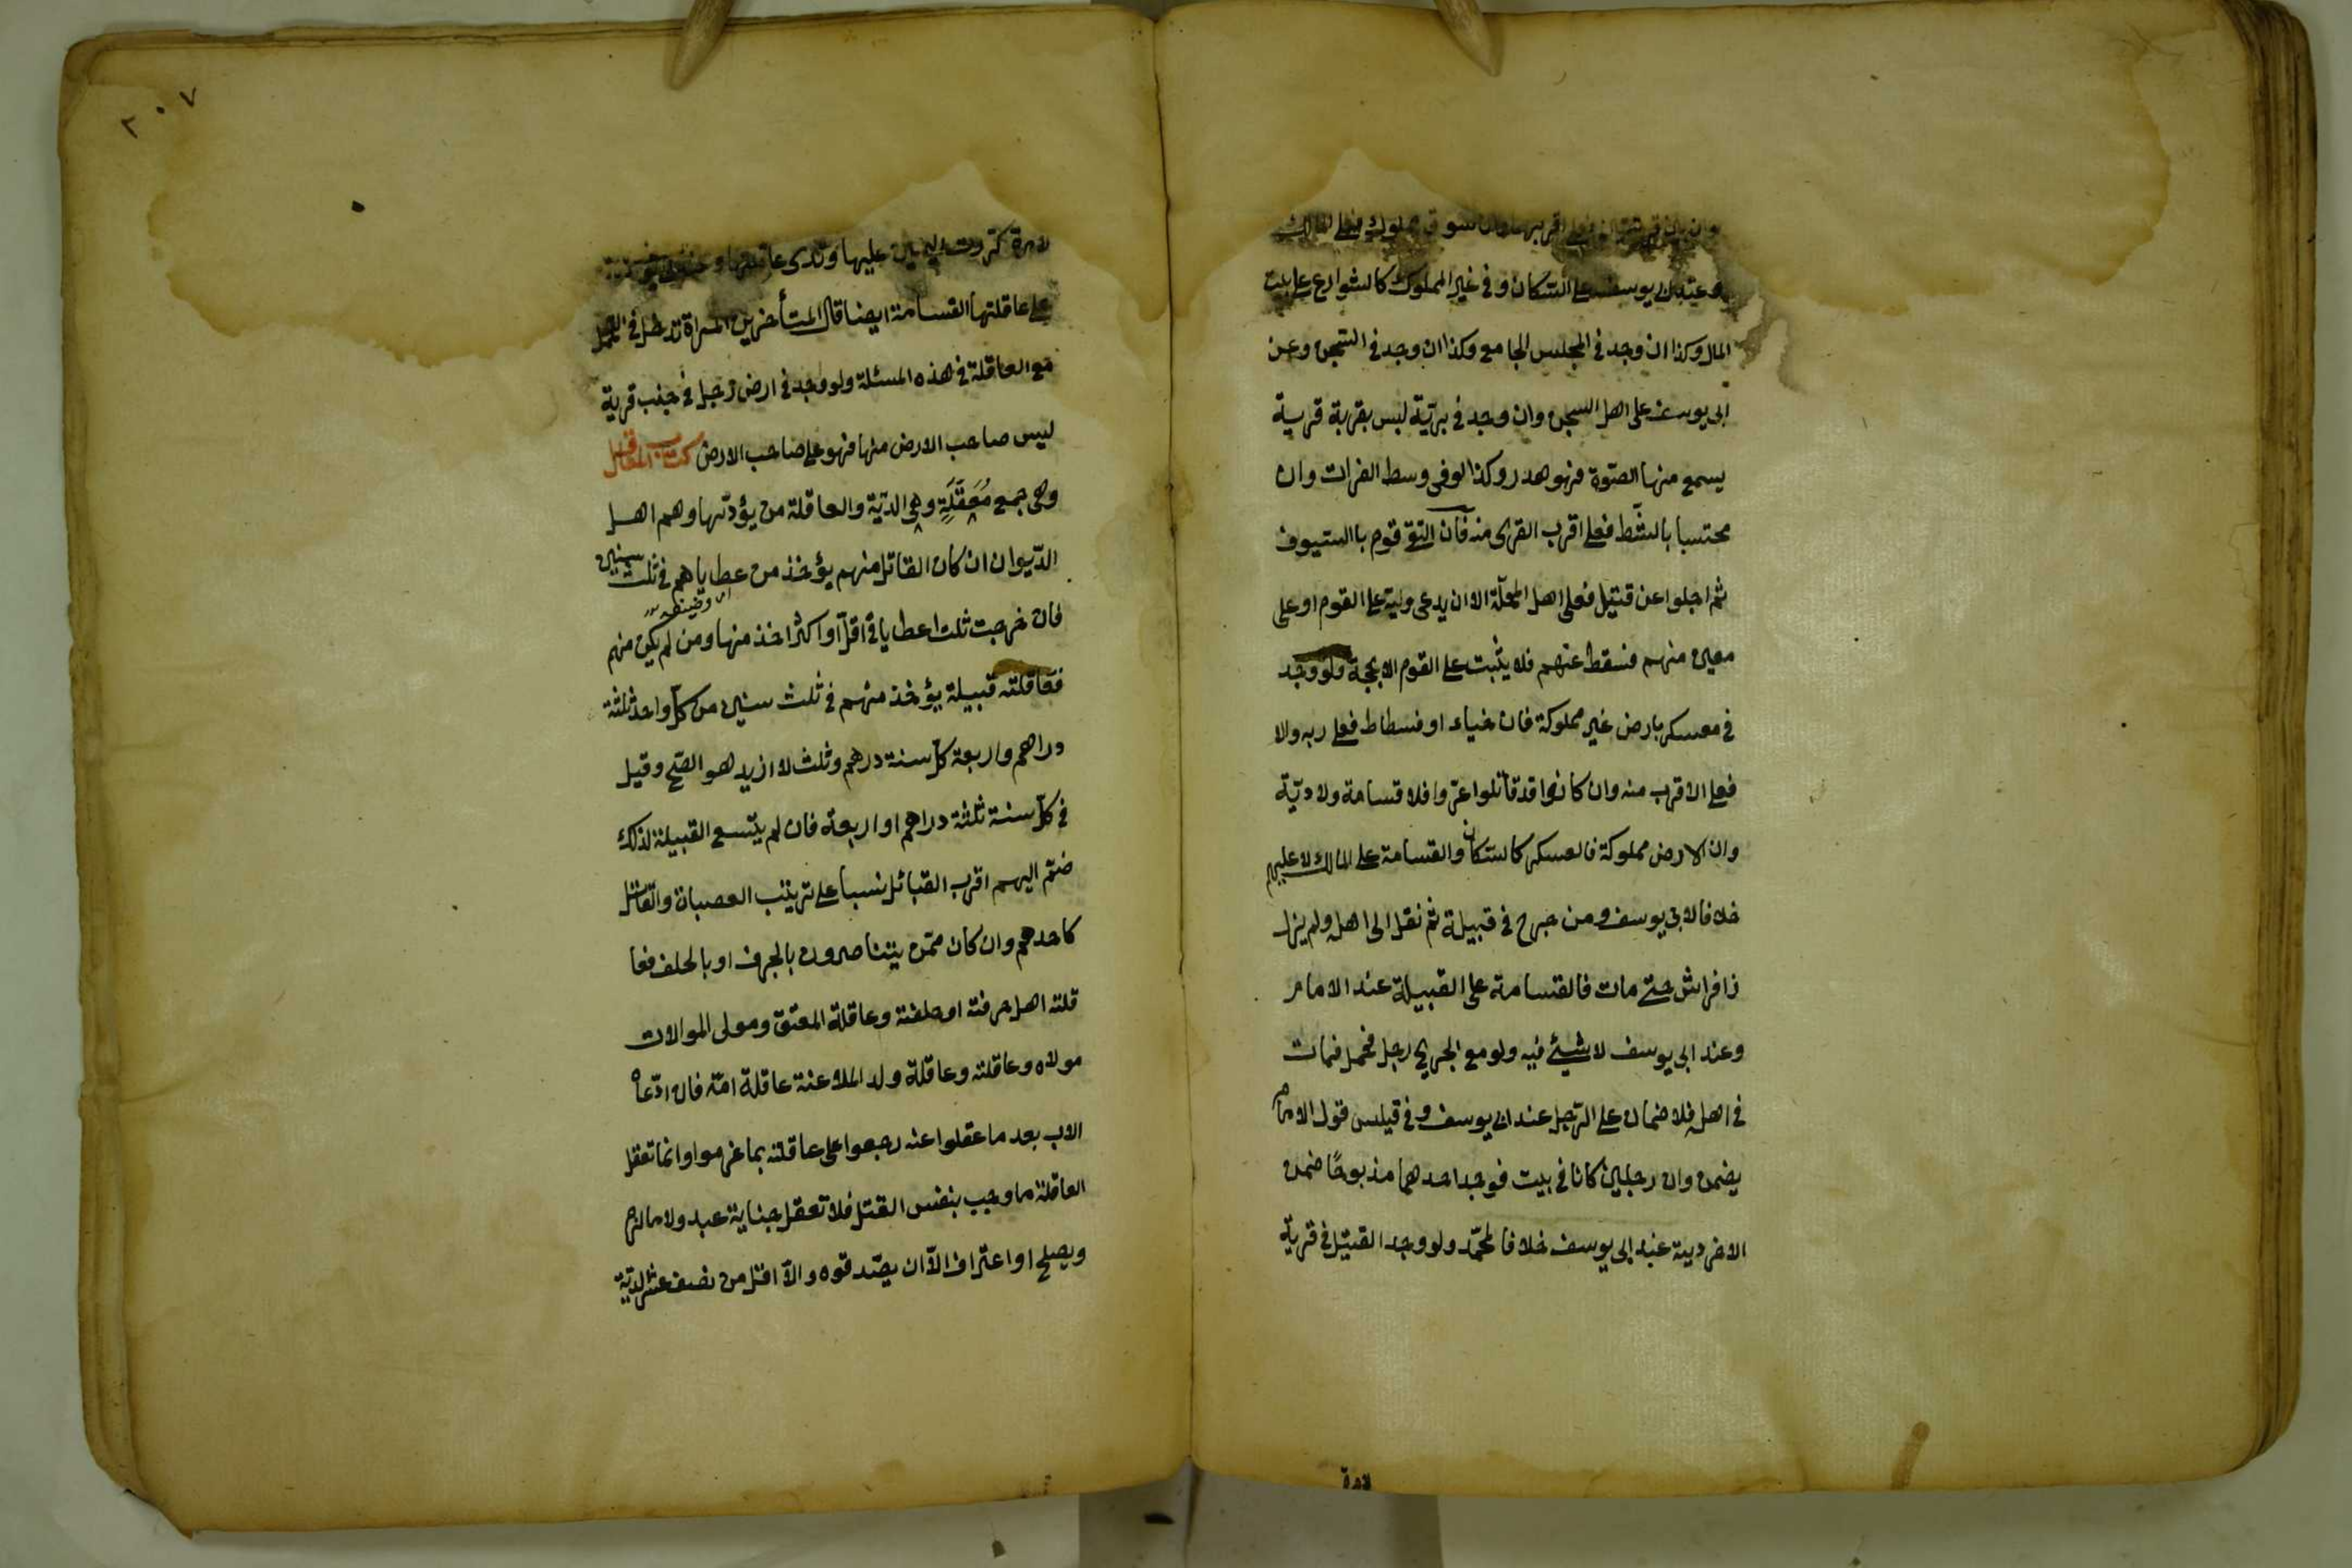 وان بين قريتين فعلى اقربهما وان سوق مملوك فعلى المالك
وعند ابى يوسف على السكان وفى غير المملوك كالشوارع على بيت
المال وكذا ان وجد فى المجلس الجامع وكذا ان وجد فى السجن وعن
ابى يوسف على اهل السجن وان وجد فى برّيّة ليس بقربة قرية
يسمع منها الصّوة فهو هدر وكذا لو فى وسط الفرات وان
محتسبا بالشّط فعلى اقرب القرى منه فان التق قوم باالسيوف
ثم اجلوا عن قتيل فعلى اهل المحلّة الا ان يدعى وليه على القوم او على
معين منهم فسقط عنهم فلا يثبت على القوم الا بحجة ولو وجد
فى معسكر بارض غير مملوكة فان خباء او فسطاط فعلى ربه والا
فعلى الاقرب منه وان كانوا قد قاتلوا عدّوا فلا قسامة ولا ديّة
وان الارض مملوكة فالعسكر كالسّكان والقسامة على المالك لا عليهم
خلافا لابى يوسف ومن جرح فى قبيلة ثم نقل الى اهله ولم يزل
ذا فراش حتى مات فالقسامة على القبيلة عند الامام
وعند ابى يوسف لا شيئ فيه ولو مع الجريح رجل فحمل فمات
فى اهله فلا ضمان على الرّجل عند ابى يوسف وفى قيلس قول الامام
يضمن وان رجلين كانا فى بيت فوجد احدهما مذبوحًا ضمن
الاخر ديته عند ابى يوسف خلافا لمحمّد ولو وجد القتيل فى قرية
لامرة
٢٠٧
لامرة كررت اليمين عليها وتدى عاقلتها وعند ابى يوسف
على عاقلتها القسامة ايضا قال المتأخرين المراة تدخل فى التحمل
مع العاقلة فى هذه المسئلة ولو وجد فى ارض رجل فى جنب قرية
ليس صاحب الارض منها فهو على صاحب الارض كتاب المعاقل
وهى جمع مَعْقَلَةٍ وهى الديّة والعاقلة من يؤدّيها وهم اهل
الدّيوان ان كان القاتل منهم يؤخذ من عطاياهم فى ثلث سنين
فان خرجت ثلث اعطايا فى اقلّ او اكثر اخذ منها ومن لم يكن منهم
فعاقلته قبيلة يؤخذ منهم فى ثلث سنين من كلّ واحد ثلثة
دراهم واربعة كلّ سنة درهم وثلث لا ازيد هو الصّح وقيل
فى كلّ سنة ثلثة دراهم او اربعة فان لم يتّسع القبيلة لذلك
ضمّ اليهم اقرب القبائل نسبا على ترتيب العصبات والقاتل
كاحدهم وان كان ممّن يتناصرون بالحرف او بالحلف فعا
قلته اهل حرفته او حلفته وعاقلة المعتق ومولى الموالات
مولاه وعاقلته وعاقلة ولد الملاعنة عاقلة امّه فان ادّعاه
الاب بعد ما عقلوا عنه رجعوا على عاقلته بما غرموا وانما تعقل
العاقلة ما وجب بنفس القتل فلا تعقل جناية عبد ولا ما لزم
وبصلح او اعتراف الاّ ان يصّدقوه والاّ اقل من نصف عشر الديّة